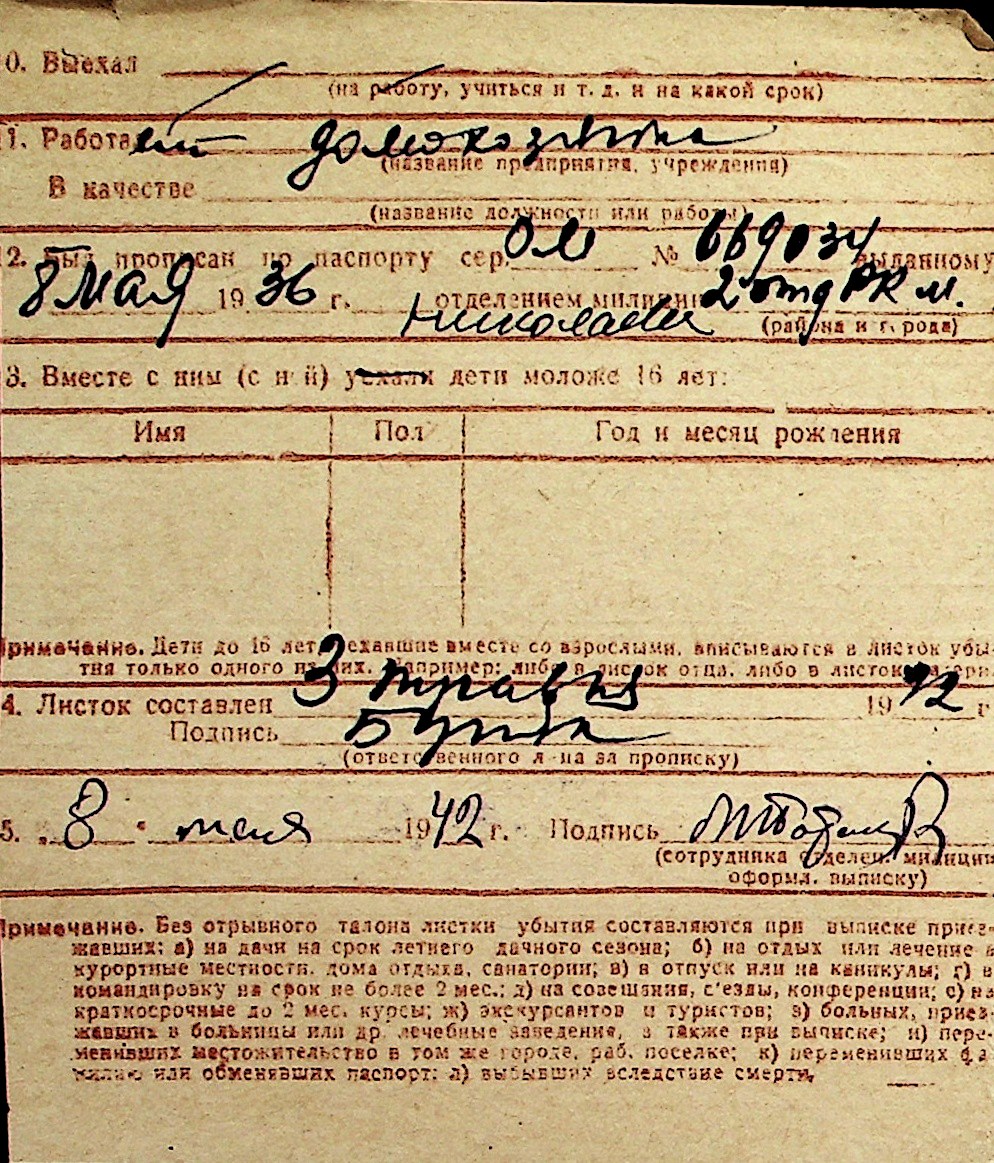 0. Выехал
(на работу, учиться и т. д. и на какой срок)
1. Работает домохозяйка
(название предприятия, учреждения)
В качестве
(название должности или работы)
2. Был прописан по паспорту сер. ОМ № 669034 выданному
8 мая 1936 г. отделением милиции 2 отд РК м.
Николаеви
(района и города)
3. Вместе с ним (с ней) уехали дети моложе 16 лет:
Имя Пол Год и месяц рождения
Примечание. Дети до 16 лет, уехавшие вместе со взрослыми, вписываются в листок убы-
тия только одного из них. Например: либо в листок отца, либо в листок матери.
4. Листок составлен 3 травня 1942 г
Подпись
(ответственного л-ца за прописку)
5. „8" мая 1942 г. Подпись
(сотрудника отделен. милиции
оформл. выписку)
Примечание. Без отрывного талона листки убытия составляются при выписке приез-
жавших: а) на дачи на срок летнего дачного сезона; б) на отдых или лечение в
курортные местности, дома отдыха, санатории; в) в отпуск или на каникулы; г) в
командировку на срок не более 2 мес.; д) на совещания, с'езды, конференции; е) на
краткосрочные до 2 мес. курсы; ж) экскурсантов и туристов; з) больных, приез-
жавших в больницы или др. лечебные заведения, а также при выписке; и) пере-
менивших местожительство в том же городе, раб. поселке; к) переменивших фа-
милию или обменявших паспорт; л) выбывших вследствие смерти.